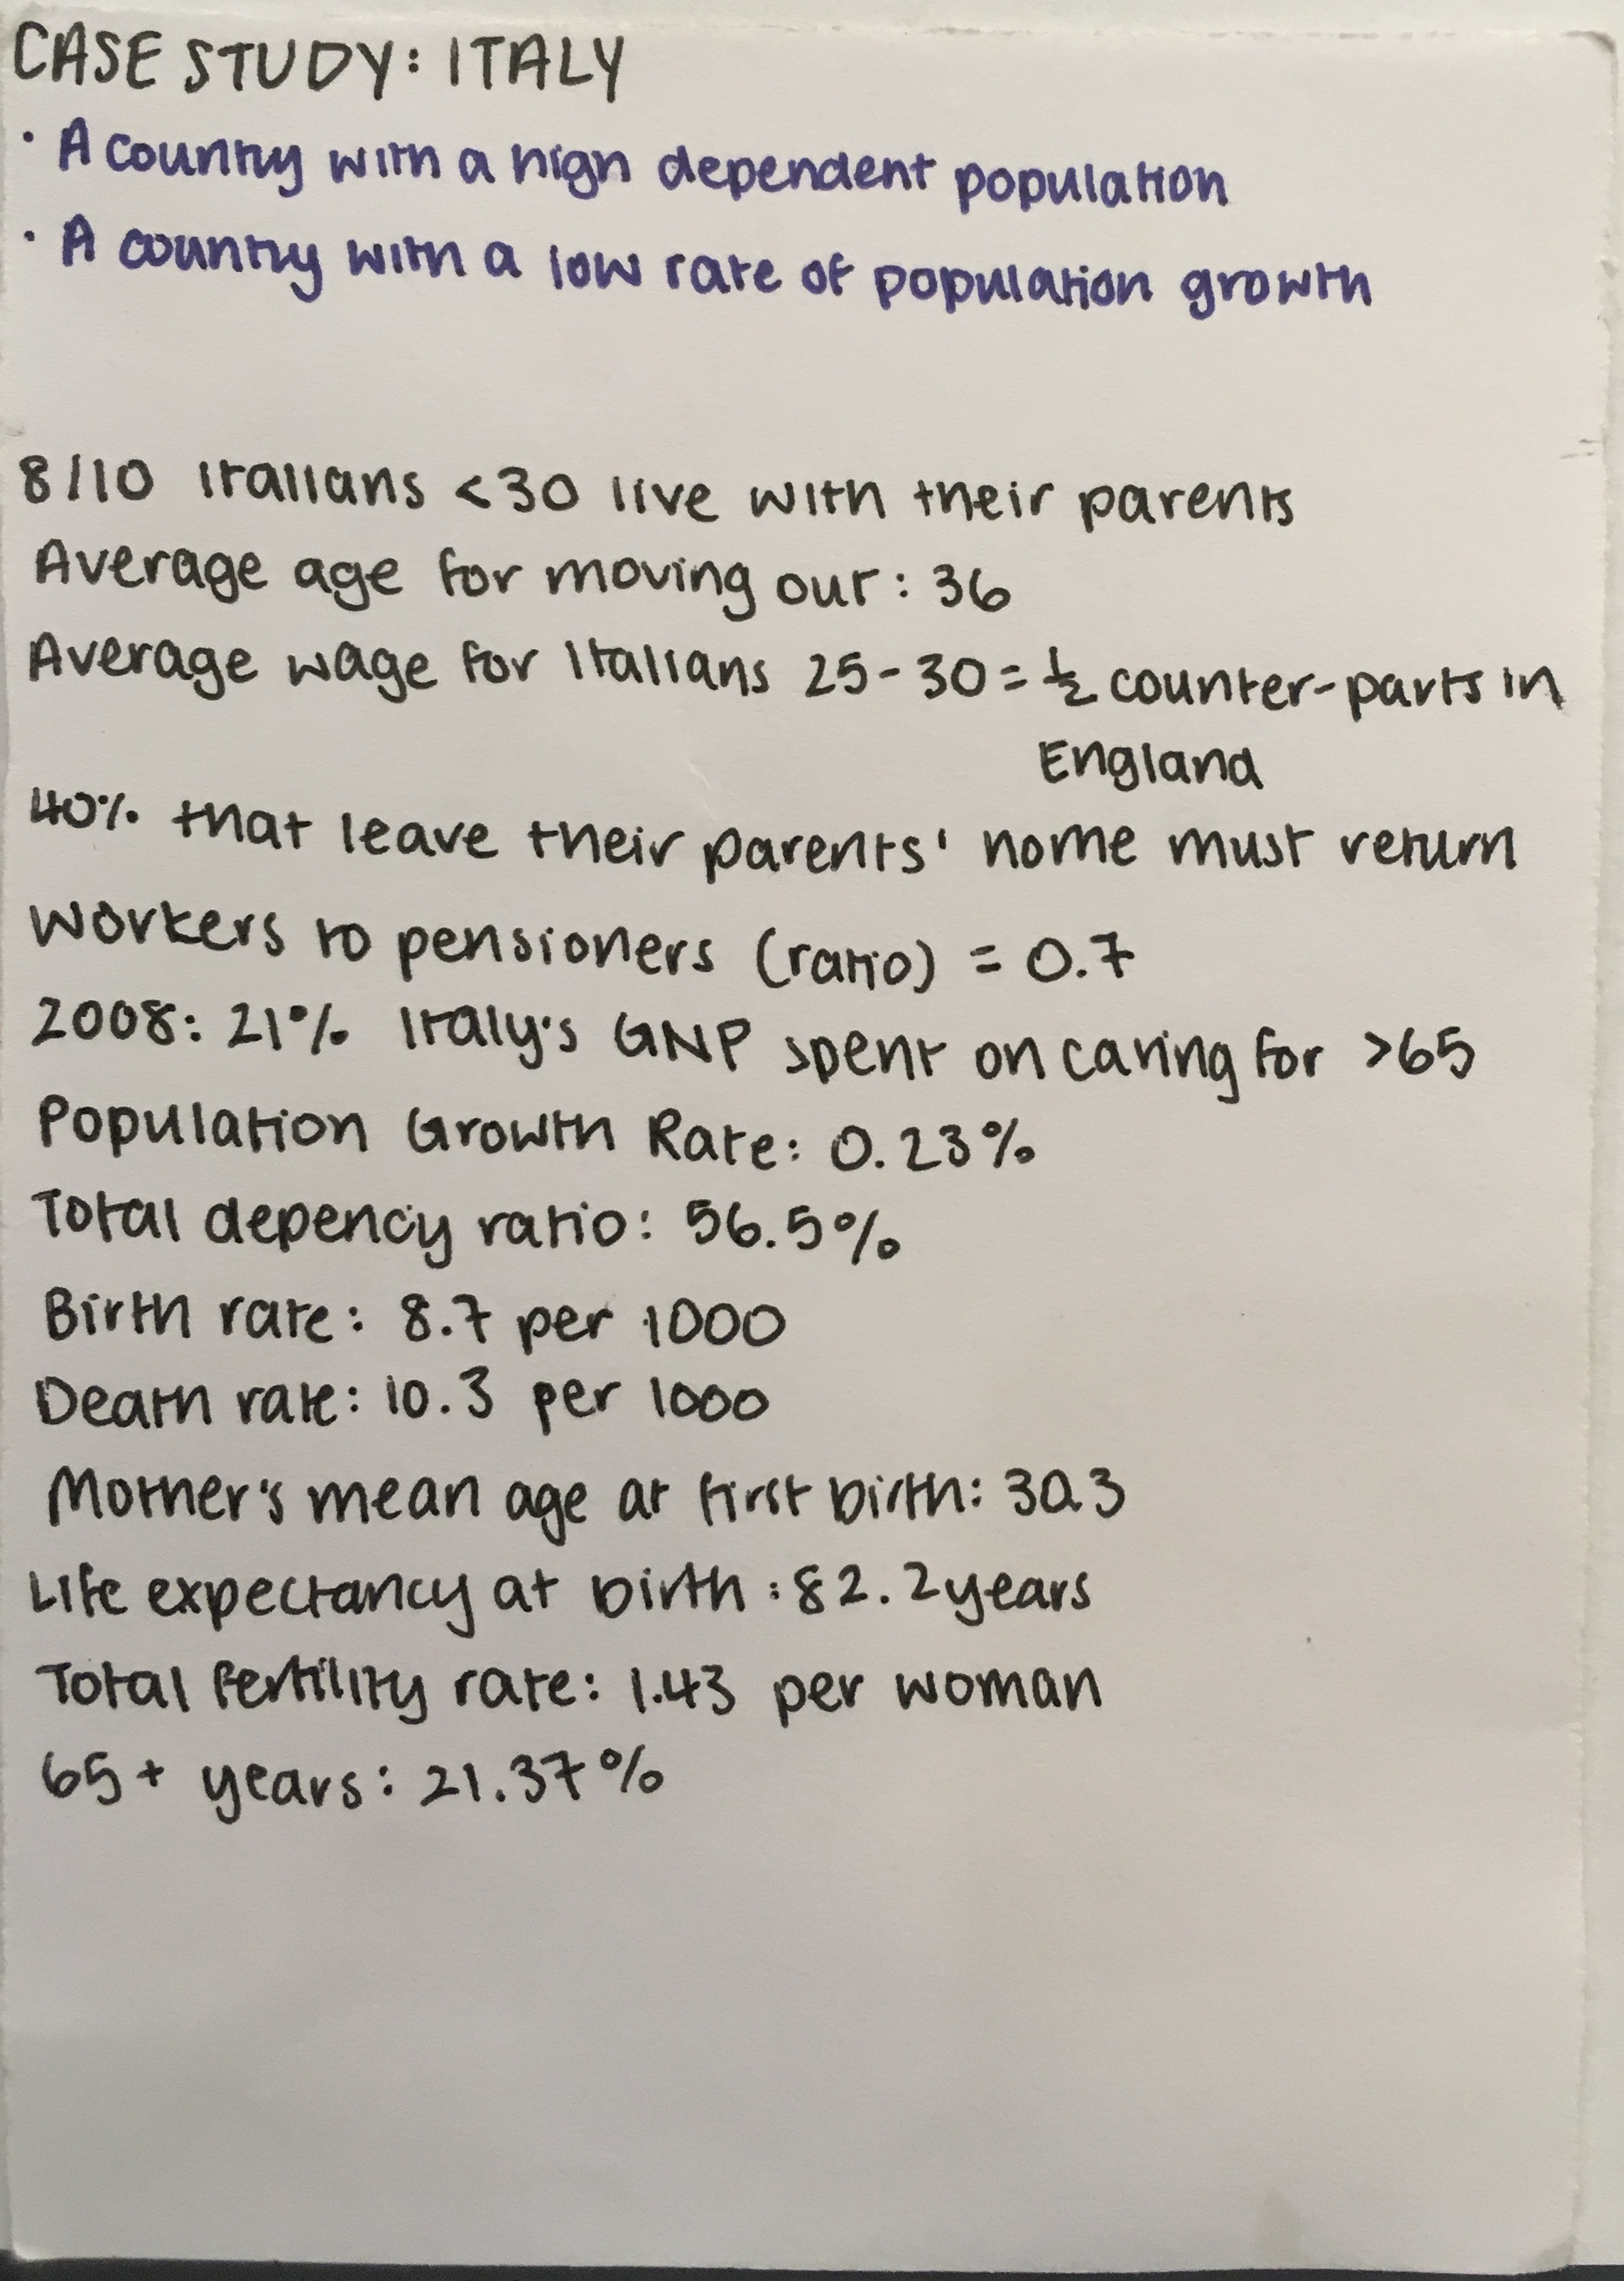 CASE STUDY: ITALY
· A country with a high dependent population
· A country with a low rate of population growth
8/10 Italians <30 live with their parents
Average age for moving out: 36
Average wage for Italians 25-30 = ½ counter-parts in
England
40% that leave their parents' home must return
Workers to pensioners (ratio) = 0.7
2008: 21% Italy's GNP spent on caring for >65
Population Growth Rate: 0.23%
Total depency ratio: 56.5%
Birth rate: 8.7 per 1000
Death rate: 10.3 per 1000
Mother's mean age at first birth: 30.3
Life expectancy at birth: 82.2 years
Total fertility rate: 1.43 per woman
65+ years: 21.37%